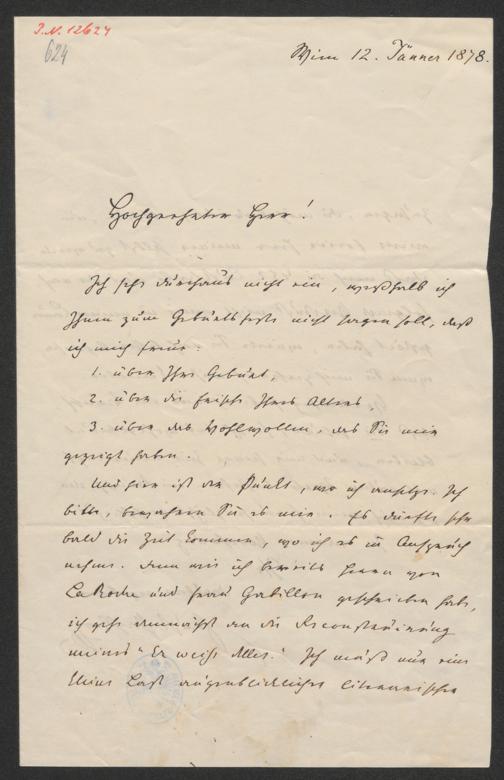 J.N. 12624
624
Wien 12. Jänner 1878.
Hochgeehrter Herr!
Ich sehe durchaus nicht ein, weßhalb ich
Ihnen zum Geburtsfeste nicht sagen soll, daß
ich mich freue:
1. über Ihre Geburt,
2. über die Frische Ihres Alters,
3. über das Wohlwollen, das Sie mir
gezeigt haben.
Und hier ist der Punkt, wo ich ansetze. Ich
bitte, bewahren Sie es mir. Es dürfte sehr
bald die Zeit kommen, wo ich es in Anspruch
nehme. Denn wie ich bereits Herrn von
LaRoche und Frau Gabillon geschrieben habe,
ich gehe demnächst an die Reconstruirung
meines "Er weiß Alles." Ich muß nur eine
kleine Last augenblicklicher literarischer